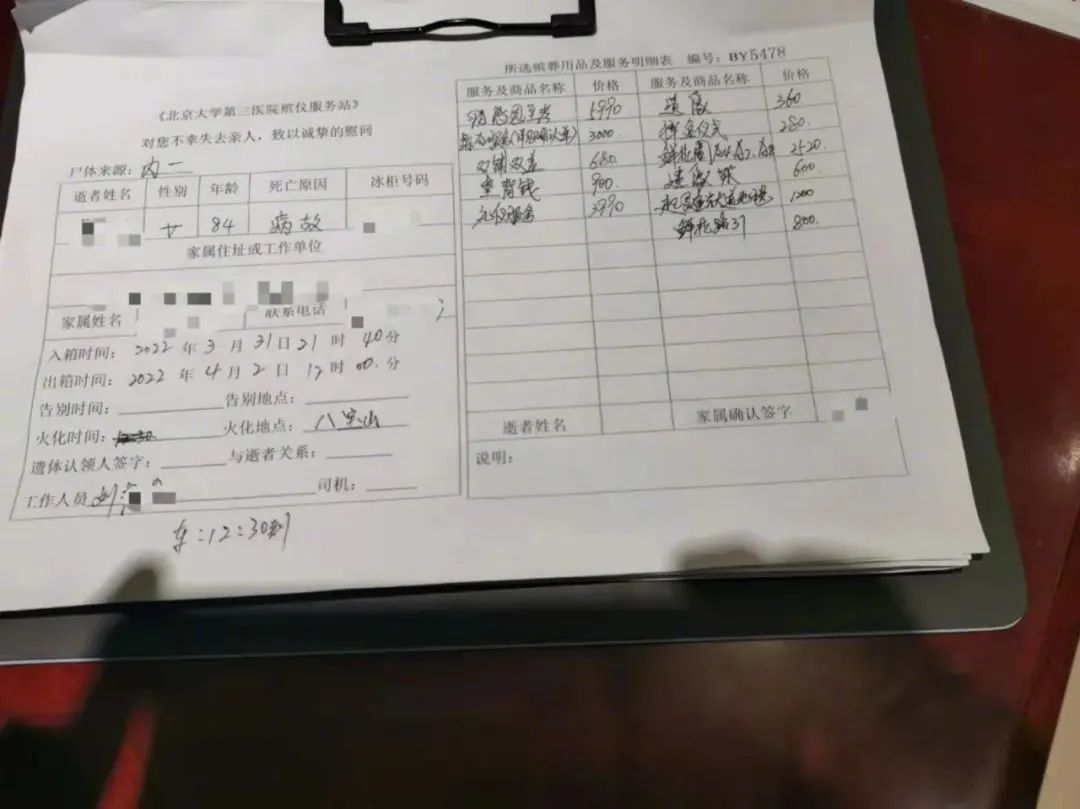 《北京大学第三医院殡仪服务站》
对您不幸失去亲人,致以诚挚的慰问
尸体来源:内一
逝者姓名 性别 年龄 死亡原因 冰柜号码
女 84 病故
家属住址或工作单位
家属姓名 联系电话
入箱时间:2022年3月31日21时40分
出箱时间:2022年4月2日12时00分
告别时间: 告别地点:
火化时间: 火化地点:八宝山
遗体认领人签字: 与逝者关系:
工作人员 司机:
车:12:30到
所选殡葬用品及服务明细表 编号:BY5478
服务及商品名称 价格 服务及商品名称 价格
5990 遗像 360
3000 280
双铺双盖 680 鲜花圈 2520
垫背钱 900 遗像架 600
礼仪服务 3990 1200
800
逝者姓名 家属确认签字
说明: